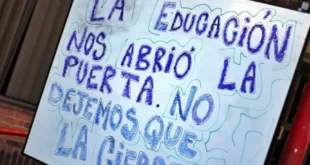 LA EDUCACIÓN
NOS ABRIÓ LA
PUERTA. NO
DEJEMOS QUE
LA